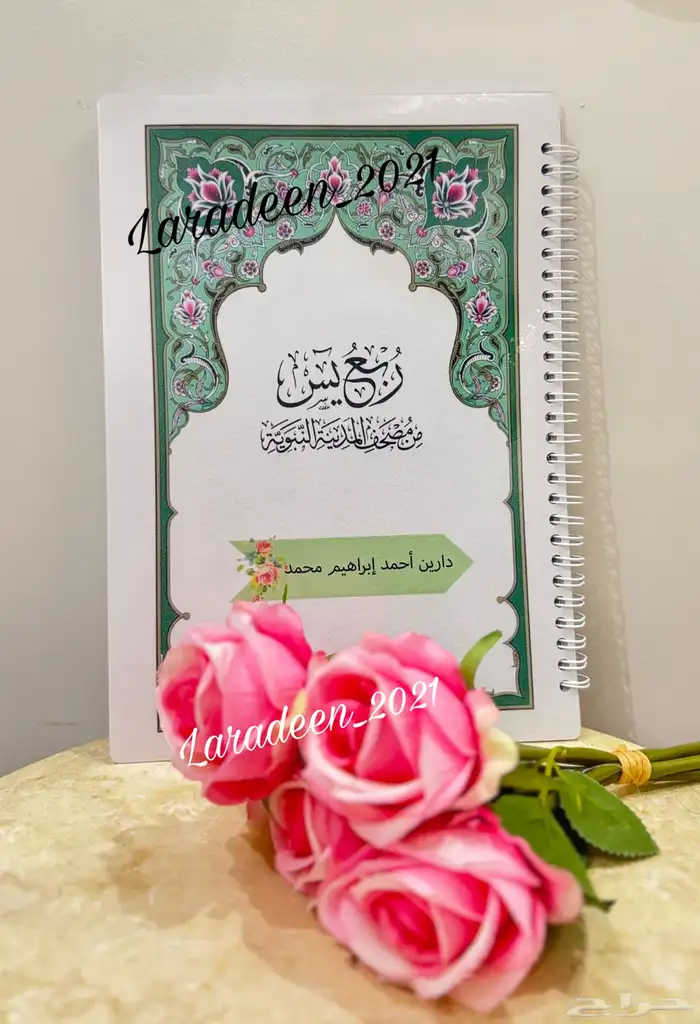 Laradeen_2021
رُبع يسٓ
مِن مُصْحَفِ المَدِينَةِ النَّبَوِيَّة
دارين أحمد إبراهيم محمد
Laradeen_2021
حراج